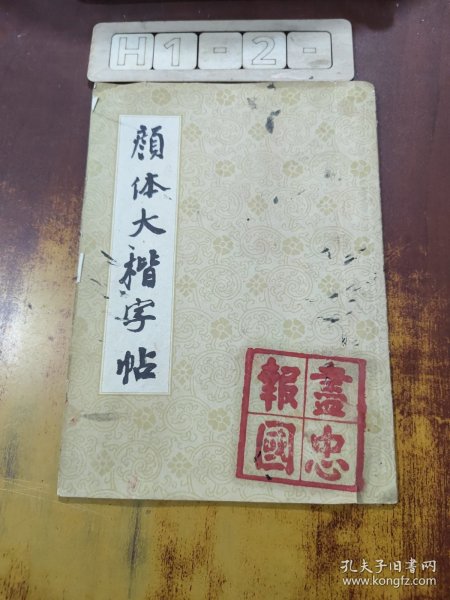 H1-2-
顔体大楷字帖
盡忠
報國
孔夫子旧书网
www.kongfz.com